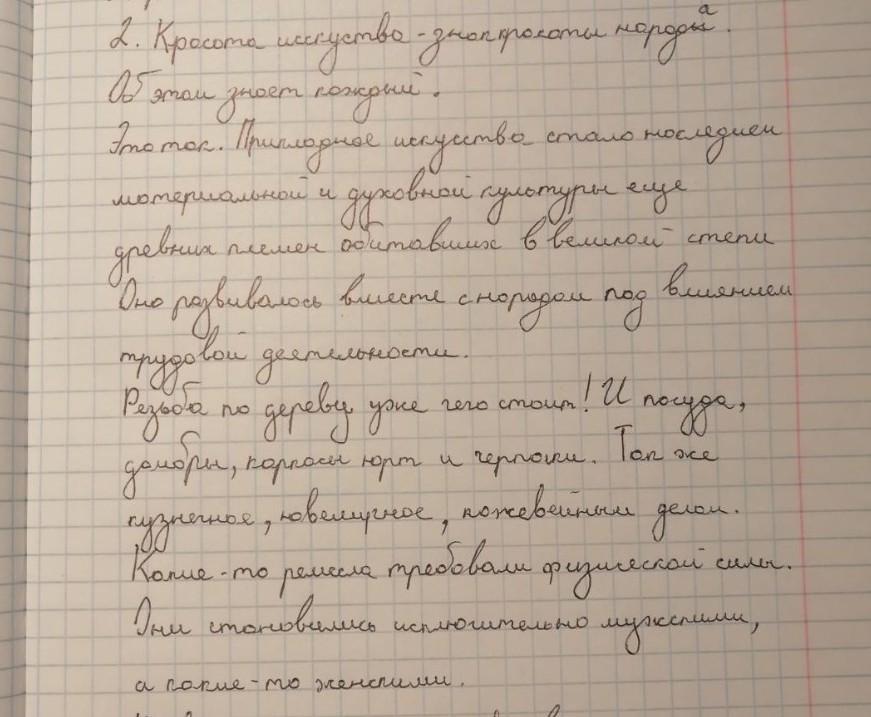 2. Красота исскуства - знак красоты народа.
Об этом знает каждый.
Это так. Прикладное искусство стало наследием
материальной и духовной культуры еще
древних племен обитавших в великой степи
Оно развивалось вместе с народом под влиянием
трудовой деятельности.
Резьба по дереву уже чего стоит! И посуда,
домбры, каркасы юрт и черпаки. Так же
кузнечное, ювелирное, кожевейным делом.
Какие-то ремесла требовали физической силы.
Они становились исключительно мужскими,
а какие-то женскими.